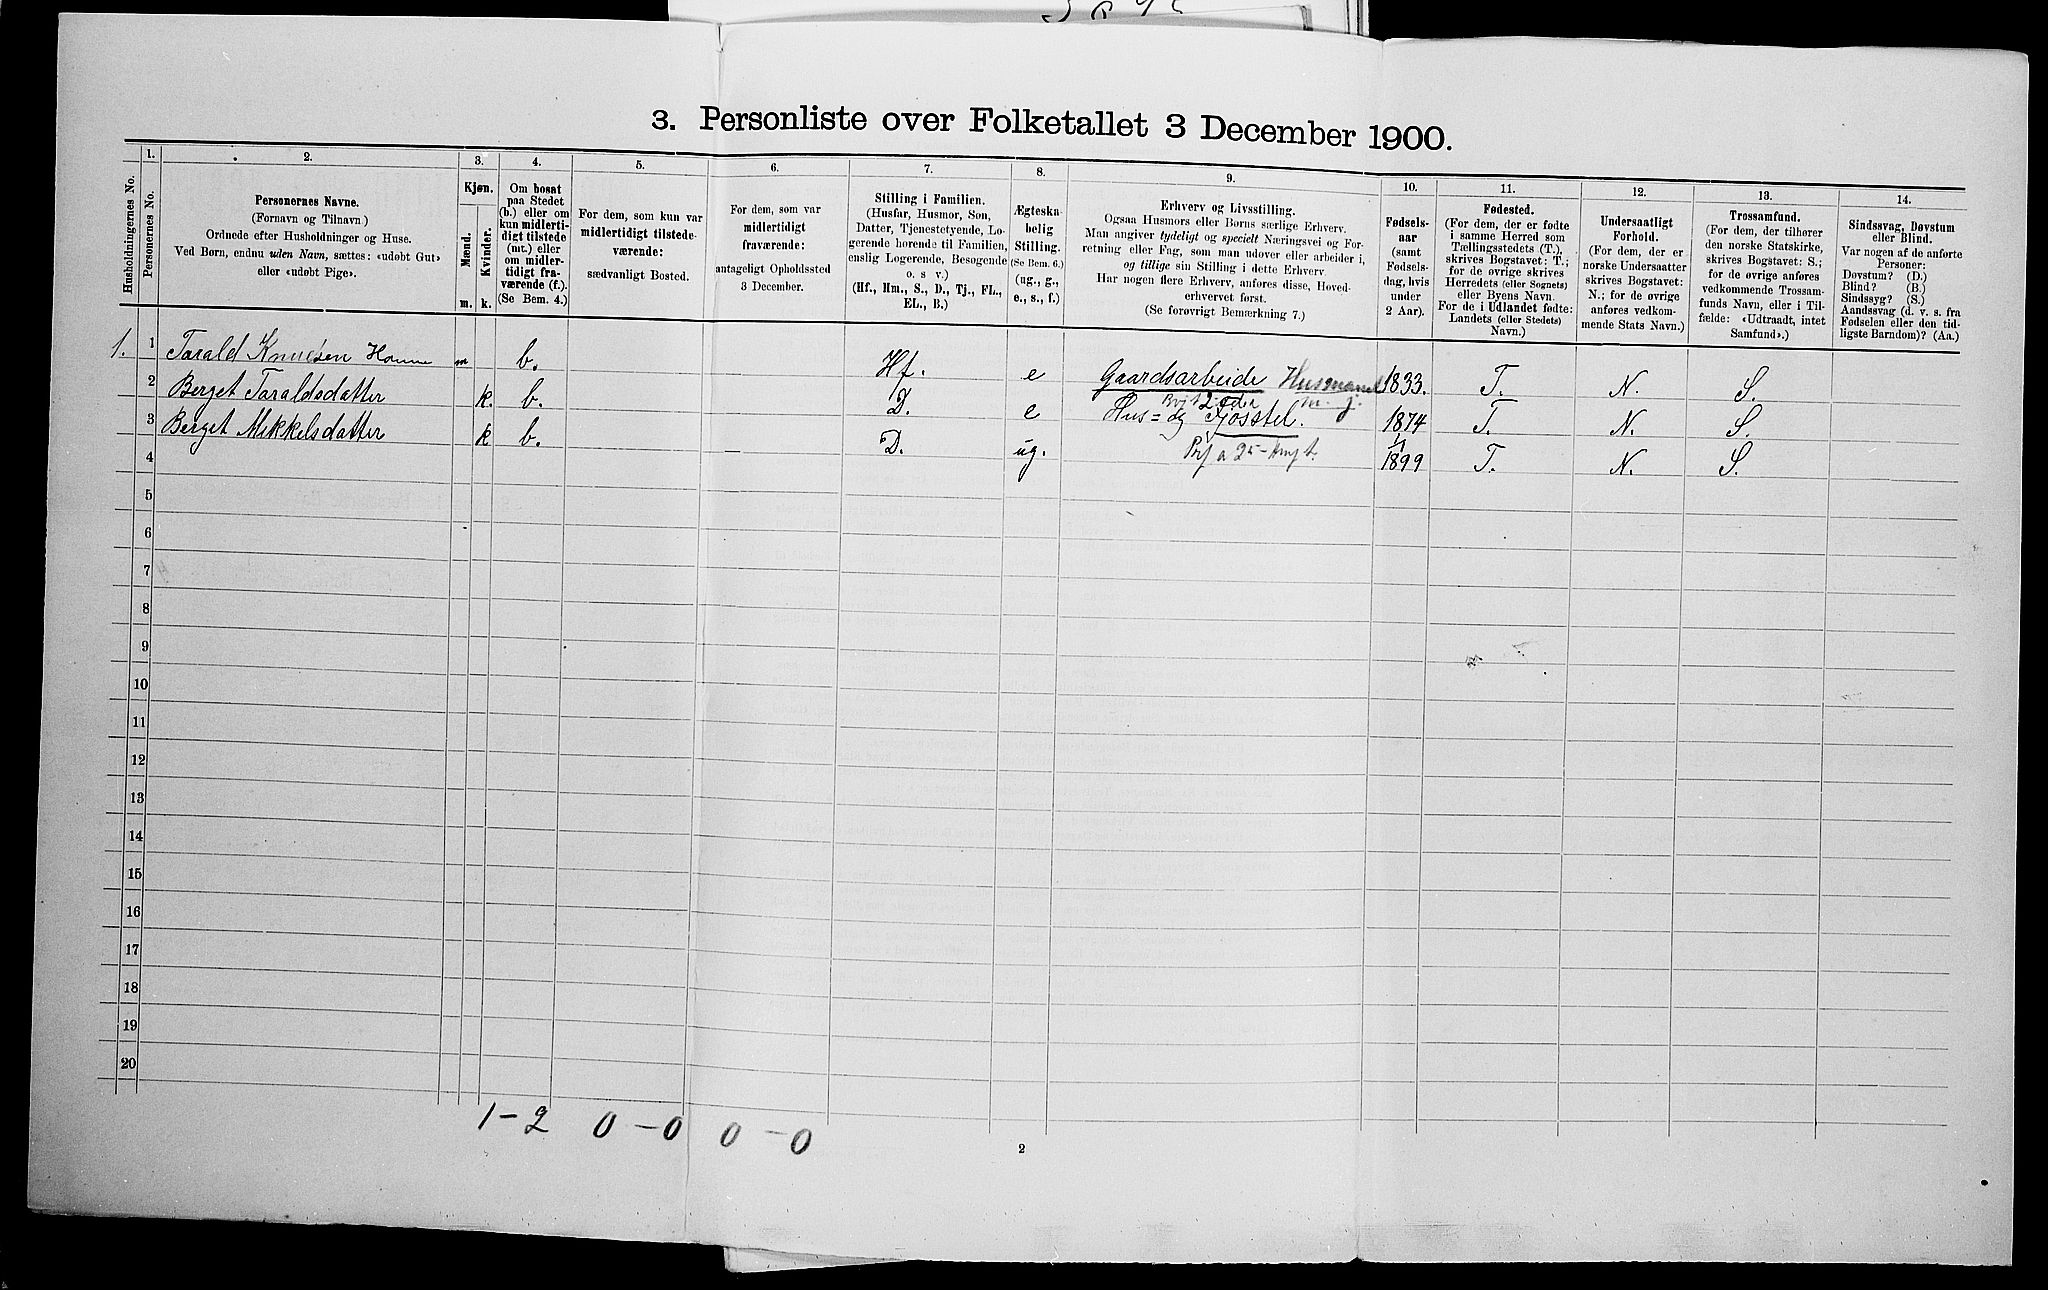 3. Personliste over Folketallet 3 December 1900.
Husholdningernes No.
1.
Personernes No.
2.
Personernes Navne.
(Fornavn og Tilnavn.)
Ordnede efter Husholdninger og Huse.
Ved Børn, endnu uden Navn, sættes: «udøbt Gut»
eller «udøbt Pige».
3.
Kjøn.
Mænd.
Kvinder.
m. k.
4.
Om bosat
paa Stedet
(b.) eller om
kun midlerti-
digt tilstede
(mt.) eller
om midler-
tidigt fra-
værende (f.).
(Se Bem. 4.)
5.
For dem, som kun var
midlertidigt tilstede-
værende:
sædvanligt Bosted.
6.
For dem, som var
midlertidigt
fraværende:
antageligt Opholdssted
3 December.
7.
Stilling i Familien.
(Husfar, Husmor, Søn,
Datter, Tjenestetyende, Lo-
gerende hørende til Familien,
enslig Logerende, Besøgende
o. s. v.)
(Hf., Hm., S., D., Tj., FL.,
EL., B.)
8.
Ægteska-
belig
Stilling.
(Se Bem. 6.)
(ug., g.,
e., s., f.)
9.
Erhverv og Livsstilling.
Ogsaa Husmors eller Børns særlige Erhverv.
Man angiver tydeligt og specielt Næringsvei og For-
retning eller Fag, som man udøver eller arbeider i,
og tillige sin Stilling i dette Erhverv.
Har nogen flere Erhverv, anføres disse, Hoved-
erhvervet først.
(Se forøvrigt Bemærkning 7.)
10.
Fødsels-
aar
(samt
Fødsels-
dag, hvis
under
2 Aar).
11.
Fødested.
(For dem, der er fødte
i samme Herred som
Tællingsstedets (T.),
skrives Bogstavet: T.;
for de øvrige skrives
Herredets (eller Sognets)
eller Byens Navn.
For de i Udlandet fødte:
Landets (eller Stedets)
Navn.)
12.
Undersaatligt
Forhold.
(For dem, der er
norske Undersaatter
skrives Bogstavet:
N.; for de øvrige
anføres vedkom-
mende Stats Navn.)
13.
Trossamfund.
(For dem, der tilhører
den norske Statskirke,
skrives Bogstavet: S.;
for de øvrige anføres
vedkommende Trossam-
funds Navn, eller i Til-
fælde: «Udtraadt, intet
Samfund».)
14.
Sindssvag, Døvstum
eller Blind.
Var nogen af de anførte
Personer:
Døvstum? (D.)
Blind? (B.)
Sindssyg? (S.)
Aandssvag (d. v. s. fra
Fødselen eller den tid-
ligste Barndom)? (Aa.)
1. 1 Tarald Knudsen m b. Hf. e Gaardsarbeide Husmand m. j. 1833. T. N. S.
2 Berget Taraldsdatter k. b. D. e Hus= og Fjøsstel. 1874 T. N. S.
3 Berget Mikkelsdatter k b. D. ug. 1/1 1899 T. N. S.
4
5
6
7
8
9
10
11
12
13
14
15
16
17
18
19
20
1-2 0-0 0-0
2